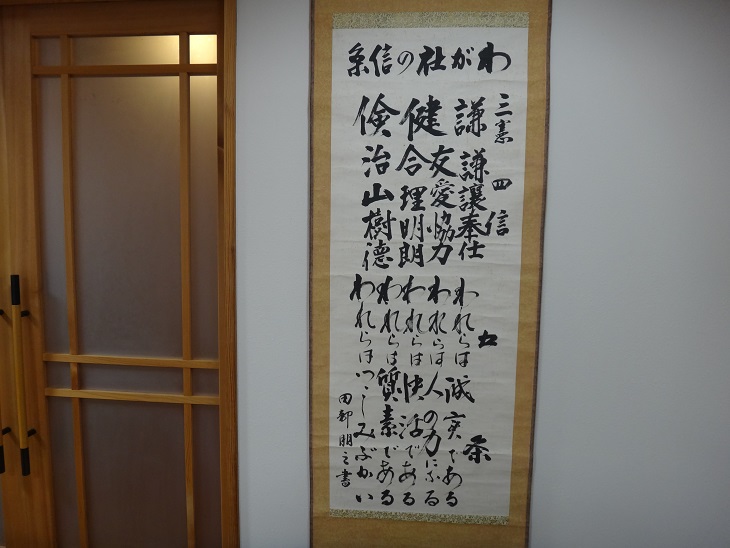 わが社の信条
三憲 四信 五条
謙
健
倹
謙譲奉仕
友愛協力
合理明朗
治山樹徳
われらは誠実である
われらは人の力になる
われらは快活である
われらは質素である
われらはつつしみぶかい
田部朋之書